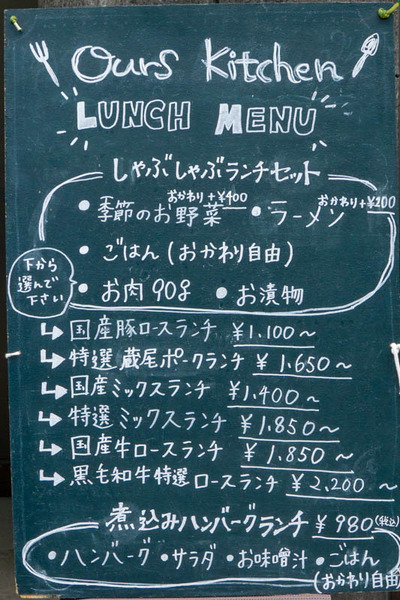 Ours Kitchen
LUNCH MENU
しゃぶしゃぶランチセット
おかわり+¥400
おかわり+¥200
●季節のお野菜 ●ラーメン
●ごはん(おかわり自由)
●お肉90g ●お漬物
下から
選んで
下さい
国産豚ロースランチ ¥1.100〜
特選蔵尾ポークランチ ¥1.650〜
国産ミックスランチ ¥1.400〜
特選ミックスランチ ¥1.850〜
国産牛ロースランチ ¥1.850〜
黒毛和牛特選ロースランチ ¥2.200〜
煮込みハンバーグランチ ¥980(税込)
●ハンバーグ ●サラダ ●お味噌汁 ●ごはん
(おかわり自由